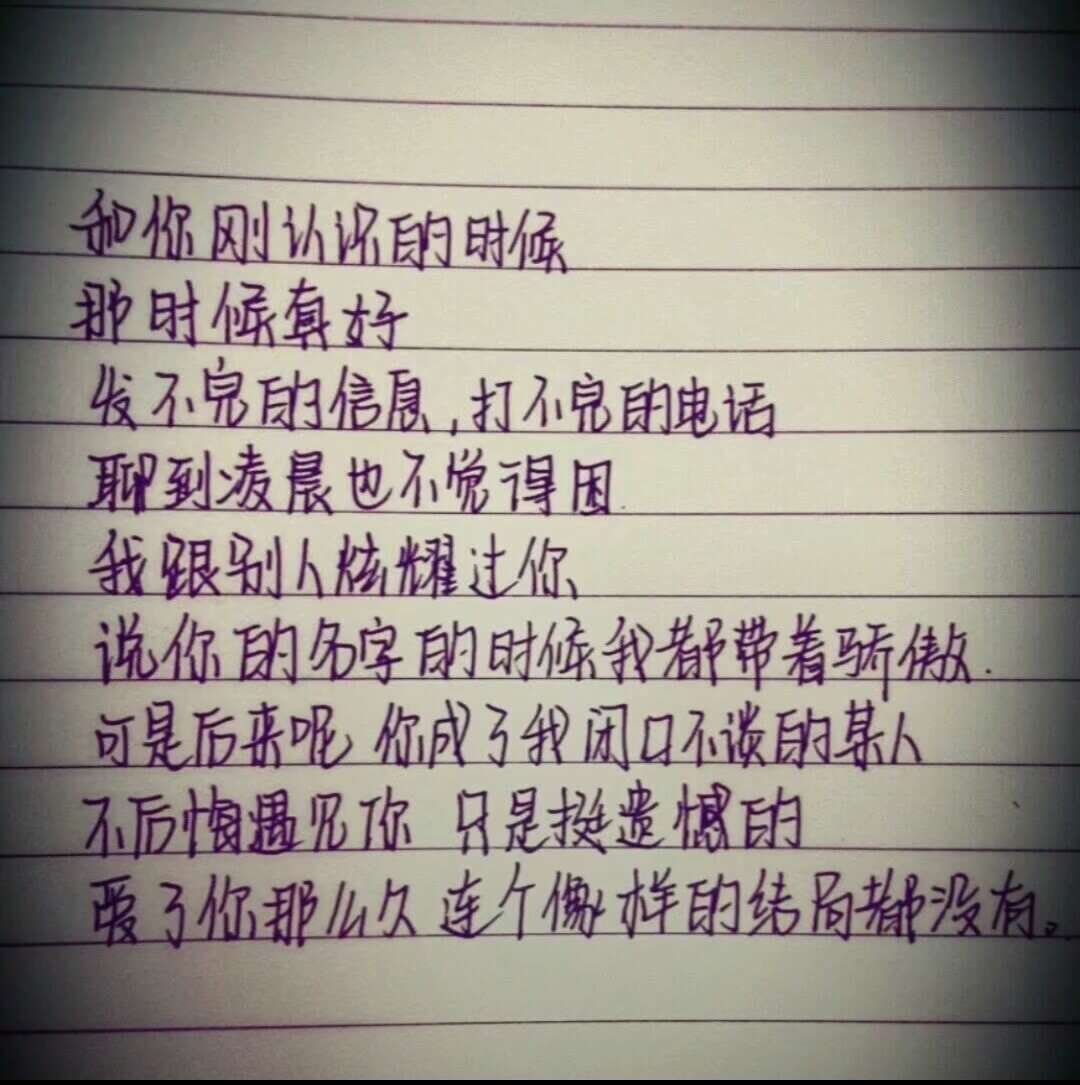 和你刚认识的时候
那时候真好
发不完的信息,打不完的电话
聊到凌晨也不觉得困
我跟别人炫耀过你
说你的名字的时候我都带着骄傲.
可是后来呢 你成了我闭口不谈的某人
不后悔遇见你 只是挺遗憾的
爱了你那么久 连个像样的结局都没有。